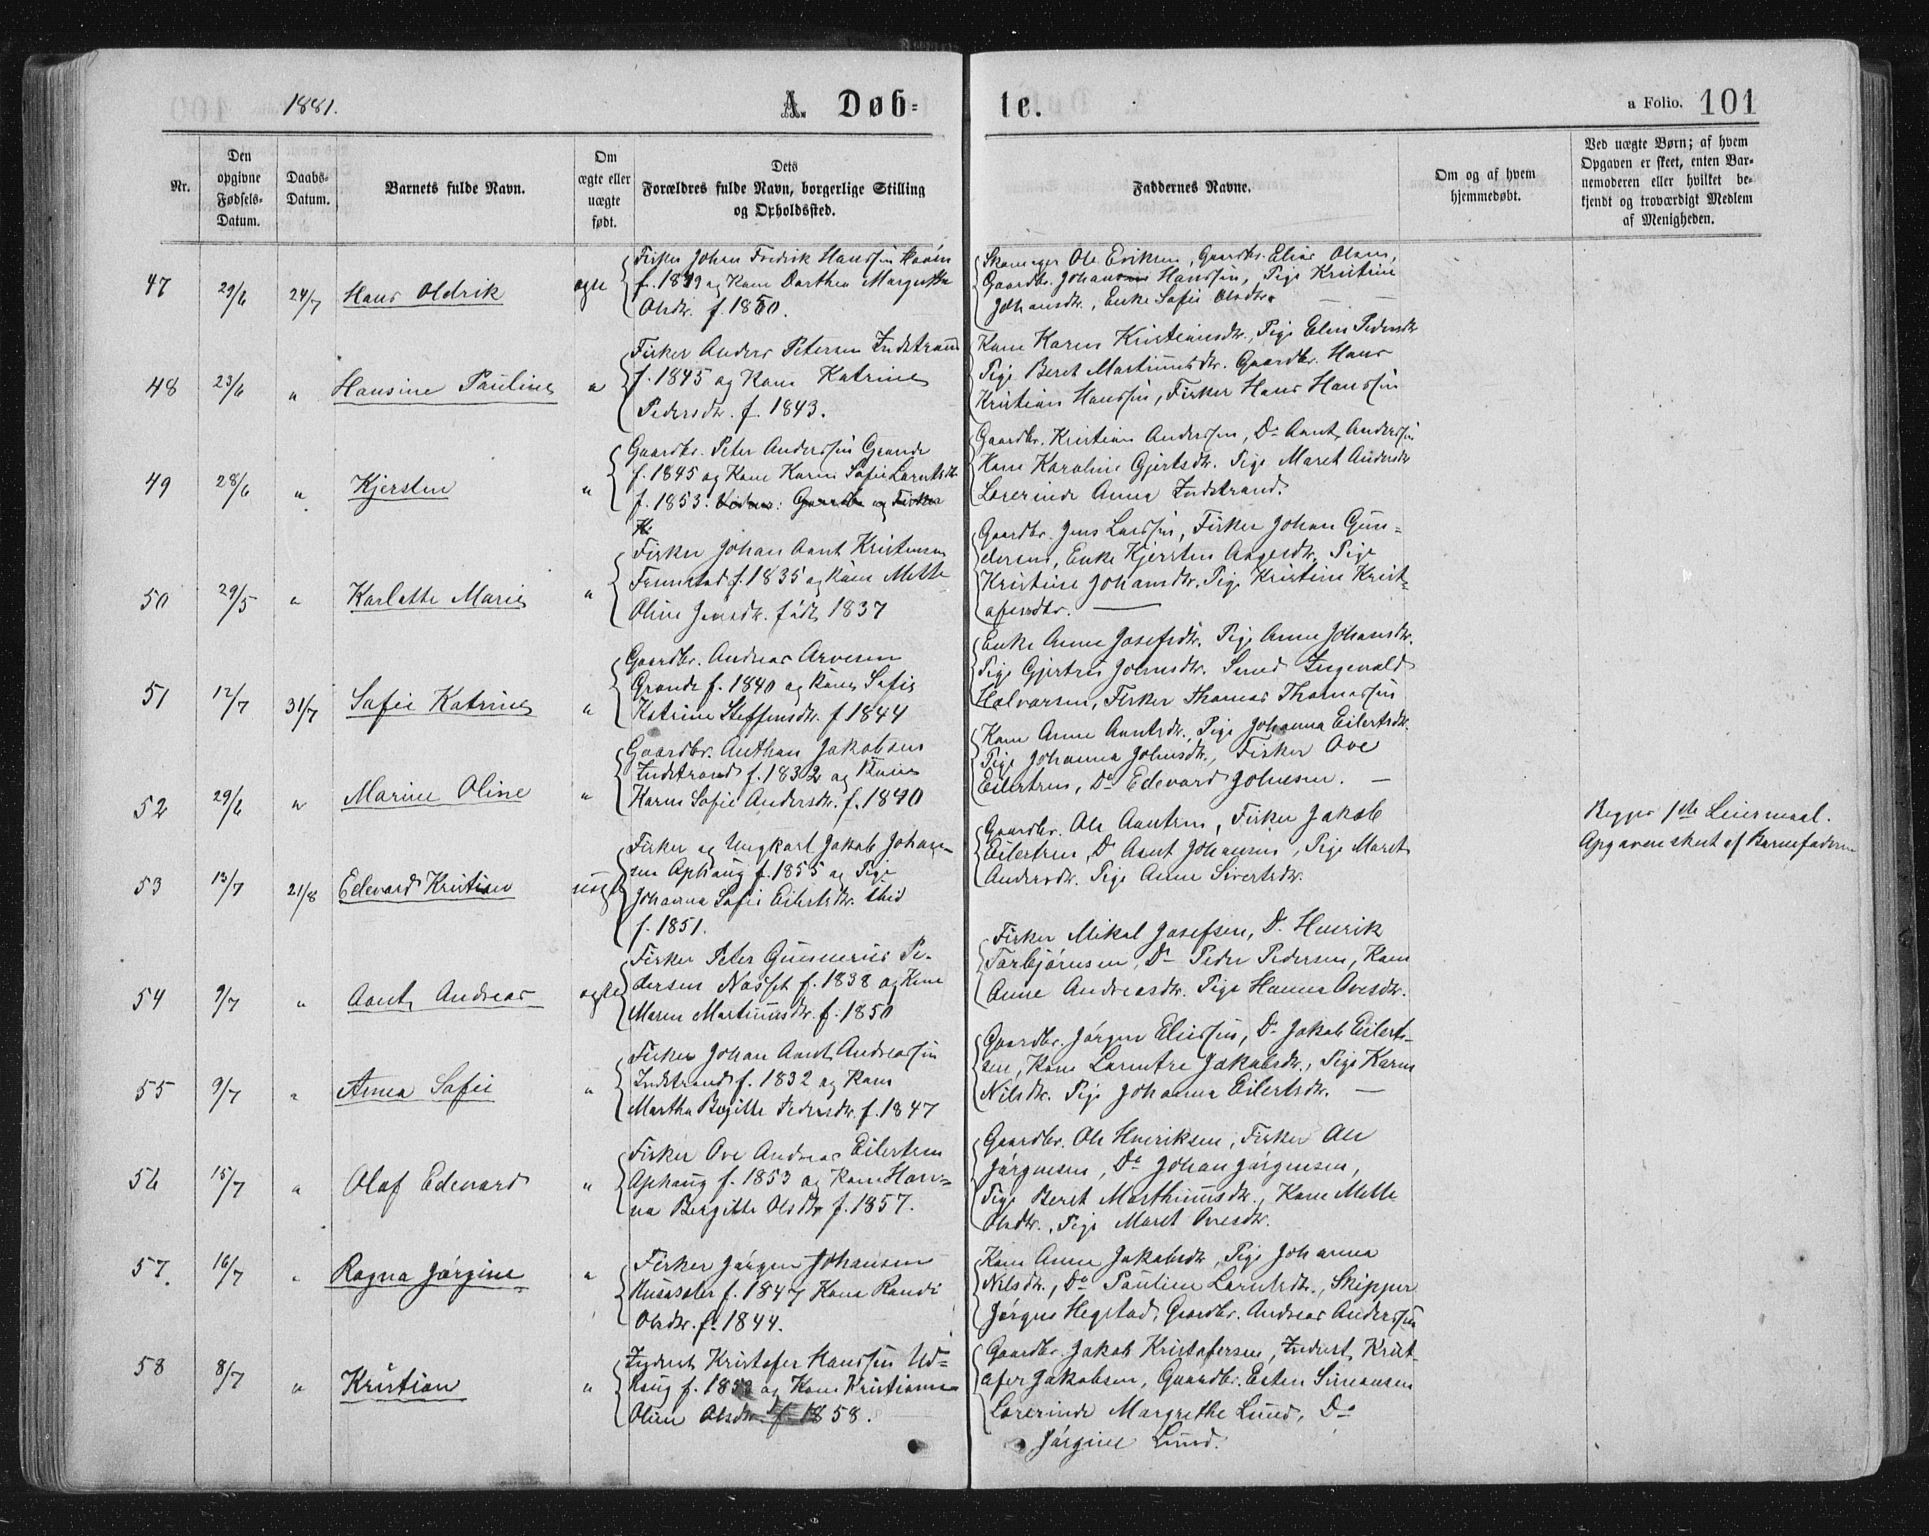 1881.
A. Døb-
te.
a Folio. 101
Nr.
Den opgivne Fødsels-Datum.
Daabs-Datum.
Barnets fulde Navn.
Om ægte eller uægte født.
Dets Forældres fulde Navn, borgerlige Stilling og Opholdssted.
Faddernes Navne.
Om og af hvem hjemmedøbt.
Ved uægte Børn; af hvem Opgaven er skeet, enten Barnemoderen eller hvilket bekjendt og troværdigt Medlem af Menigheden.
47 29/6 24/7 Hans Oldrik ægte
Fisker Johan Fredrik Hanssen
f. 1849 og Kone Dorthea Margretha
Olsdtr. f. 1850.
Ole Eriksen, Gaardbr. Elias Olsen,
Gaardbr. Johan Hanssen, Pige Kristine
Johansdtr., Enke Sofie Olsdtr.
48 23/6 " Hansine Pauline "
Fisker Anders Petersen Indstrand
f. 1845 og Kone Katrine
Pedersdtr. f. 1843.
Kone Karen Kristiansdtr., Pige Elen Pedersdtr
Pige Beret Martinusdtr. Gaardbr. Hans
Kristian Hanssen, Fisker Hans Hanssen
49 28/6 " Kjersten "
Gaardbr. Peter Anderssen Grande
f. 1845 og Kone Karen Sofie Larntsdtr
f. 1853.
Gaardbr. Kristian Anderssen, Do Aant Anderssen
Kone Karoline Gjertsdtr. Pige Maret Andersdtr
Lærerinde Anna Indstrand.
50 29/5 " Karlotte Marie "
Fisker Johan Aant Kristensen
f. 1835 og Kone Mette
Oline Jensdtr. født 1837
Gaardbr. Jens Larssen, Fisker Johan Gun-
dersen, Enke Kjersten Aagesdtr, Pige
Kristine Johansdtr. Pige Kristine Krist-
afersdtr.
51 12/7 31/7 Sofie Katrine "
Gaardbr. Andreas Arvesen
Grande f. 1840 og Kone Sofie
Katrine Steffensdtr. f 1844
Enke Anne Josefsdtr. Pige Anne Johansdtr.
Pige Gjertru Johnsdtr. Smed Ingevald
Halvorsen, Fisker Thomas Thomassen
52 29/6 " Marine Oline "
Gaardbr. Anthon Jakobsen
Indstrand f. 1832 og Kone
Karen Sofie Andersdtr. f. 1840
Kone Anne Aantsdtr., Pige Johanna Eilertsdtr.
Pige Johanna Johnsdtr, Fisker Ove
Eilertsen, Do Edevard Johnsen.
53 13/7 21/8 Edevard Kristian uægte
Fisker og Ungkarl Jakob Johan-
sen Aphaug f. 1855 og Pige
Johanna Sofie Eilertsdtr. ibid
f. 1851.
Gaardbr. Ole Aantsen, Fisker Jakob
Eilertsen, Do Aant Johansen, Pige Maret
Andersdtr. Pige Anne Sivertsdtr.
Begges 1ste Leiermaal.
Opgaven skeet af Barnefaderen
54 9/7 " Aant Andreas ægte
Fisker Peter Gunnerius Pe-
dersen f. 1838 og Kone
Maren Martinusdtr. f. 1850
Fisker Mikal Josefsen, Do Henrik
Torbjørnsen, Do Peder Pedersen, Kone
Anne Andreasdtr. Pige Hanna Ovesdtr.
55 9/7 " Anna Sofie "
Fisker Johan Aant Andreassen
Indstrand f. 1832 og Kone
Martha Begitte Pedersdtr. f. 1847
Gaardbr. Jørgen Eliassen, Do Jakob Eilert-
sen, Kone Larntre Jakobsdtr, Pige Karen
Nilsdtr. Pige Johanna Eilertsdtr.
56 15/7 " Olaf Edevard "
Fisker Ove Andreas Eilertsen
Aphaug f. 1853 og Kone Han-
na Bergitte Olsdtr f. 1857.
Gaardbr. Ole Henriksen, Fisker Ole
Jørgensen, Do Johan Jørgensen,
Pige Beret Marthinusdtr., Kone Mette
Olsdtr., Pige Maret Ovesdtr.
57. 16/7 " Ragna Jørgine "
Fisker Jørgen Johansen
Rusaseter f. 1847 Kone Randi
Olsdtr. f. 1844.
Kone Anne Jakobsdtr, Pige Johanna
Nilsdtr., Do Pauline Larntsdtr., Skipper
Jørgen Hegstad, Gaardbr. Andreas Anderssen
58 8/7 " Kristian "
Inderst Kristofer Hanssen Ud-
haug f. 1853 og Kone Kristianna
Oline Olsdtr. f. 1858.
Gaardbr. Jakob Kristofersen, Inderst Krist-
ofer Jakobsen, Gaardbr. Esten Simonsen
Lærerinde Margrethe Lund, Do
Jørgine Lund.